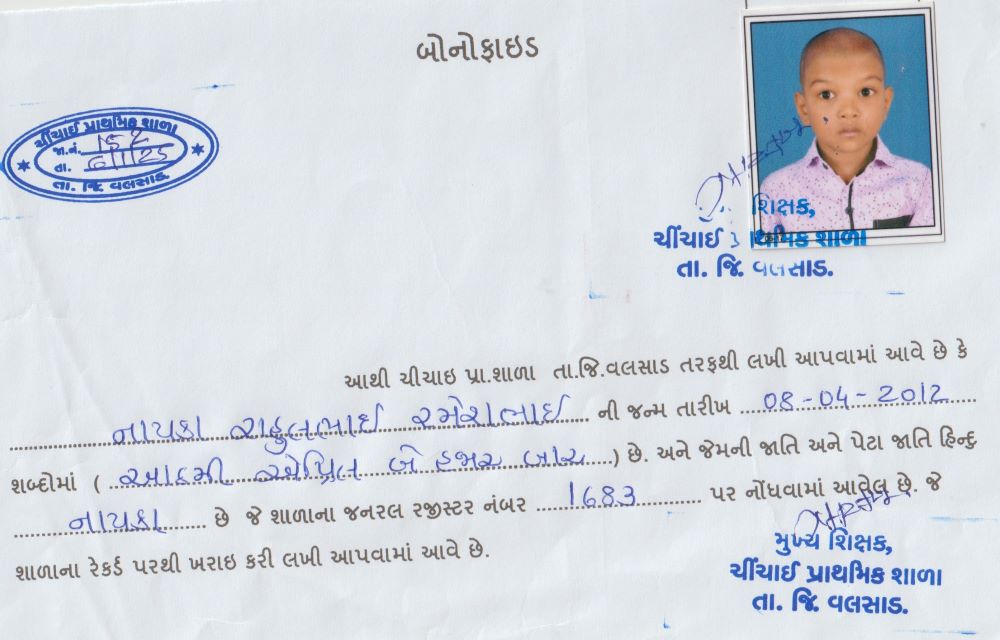 બોનોફાઇડ
ચીંચાઈ પ્રાથમિક શાળા
જા.નં. 152
તા. 6/1/25
તા. જિ. વલસાડ
શિક્ષક,
ચીંચાઈ પ્રાથમિક શાળા
તા. જિ. વલસાડ.
આથી ચીચાઇ પ્રા.શાળા તા.જિ.વલસાડ તરફથી લખી આપવામાં આવે છે કે
નાયકા રાહુલભાઈ રમેશભાઈ ની જન્મ તારીખ 08-04-2012
શબ્દોમાં ( આઠમી એપ્રિલ બે હજાર બાર ) છે. અને જેમની જાતિ અને પેટા જાતિ હિન્દુ
નાયકા છે જે શાળાના જનરલ રજીસ્ટર નંબર 1683 પર નોંધવામાં આવેલ છે. જે
શાળાના રેકર્ડ પરથી ખરાઇ કરી લખી આપવામાં આવે છે.
મુખ્ય શિક્ષક,
ચીંચાઈ પ્રાથમિક શાળા
તા. જિ. વલસાડ.